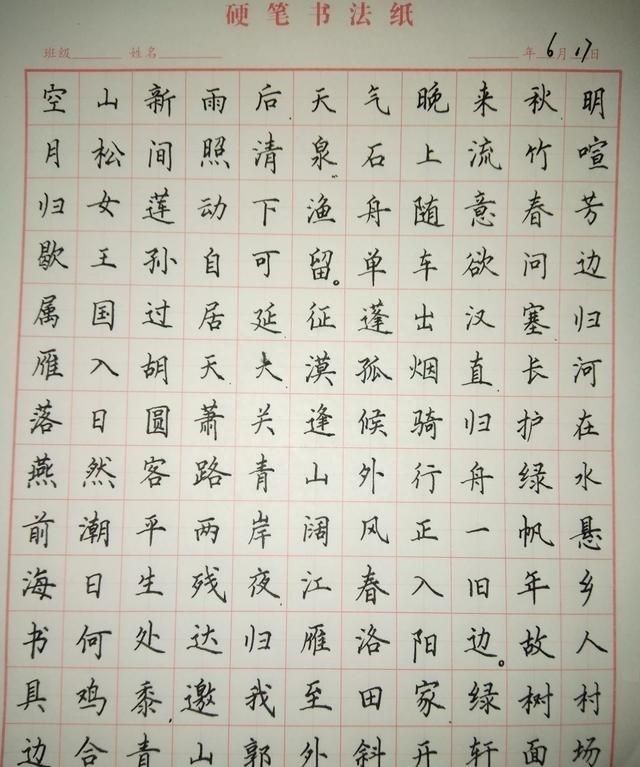 硬笔书法纸
班级 姓名 年6月17日
空山新雨后天气晚来秋明
月松间照清泉石上流竹喧
归女莲动下渔舟随意春芳
歇王孙自可留。单车欲问边
属国过居延征蓬出汉塞归
雁入胡天大漠孤烟直长河
落日圆萧关逢候骑归护在
燕然客路青山外行舟绿水
前潮平两岸阔风正一帆悬
海日生残夜江春入旧年乡
书何处达归雁洛阳边。故人
具鸡黍,邀我至田家绿树村
边合青山郭外斜开轩面场